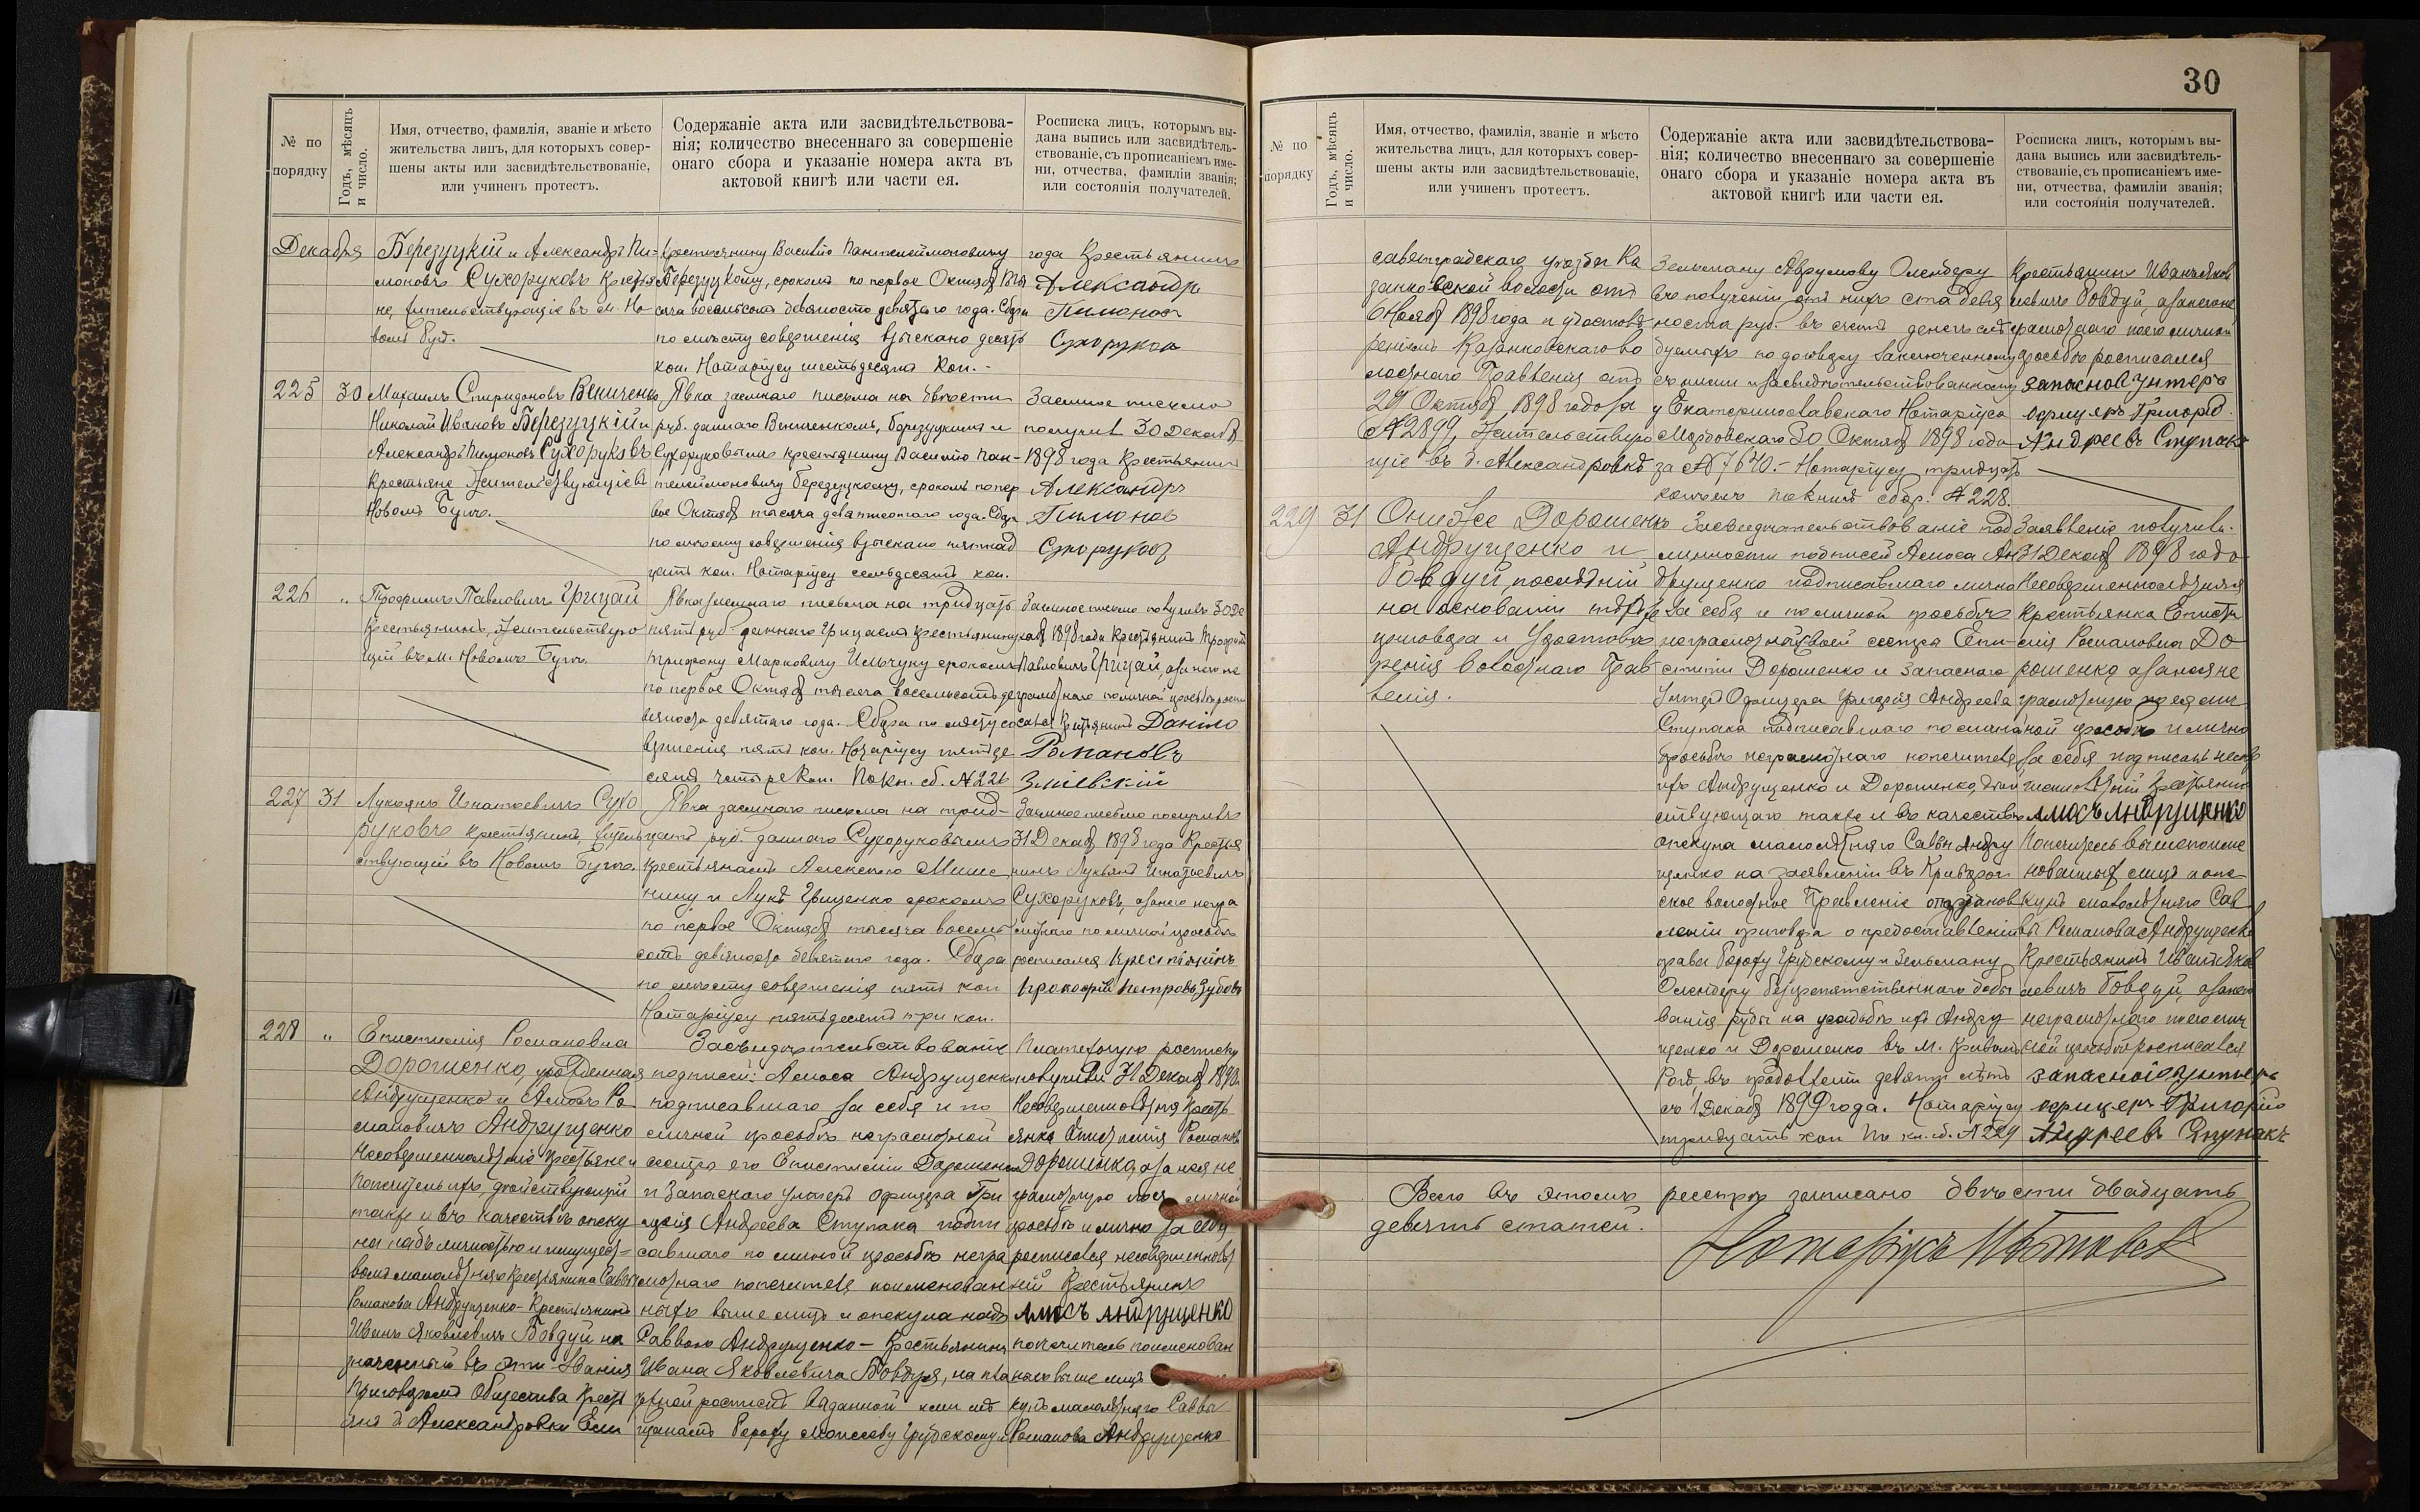 № по порядку
Годъ, мѣсяцъ и число.
Имя, отчество, фамилія, званіе и мѣсто
жительства лицъ, для которыхъ совер-
шены акты или засвидѣтельствованіе,
или учиненъ протестъ.
Содержаніе акта или засвидѣтельствова-
нія; количество внесеннаго за совершеніе
онаго сбора и указаніе номера акта въ
актовой книгѣ или части ея.
Росписка лицъ, которымъ вы-
дана выпись или засвидѣтель-
ствованіе, съ прописаніемъ име-
ни, отчества, фамиліи званія;
или состоянія получателей.
Декабря
Березуцкій и Александръ Пи-
моновъ Сухоруковъ крестья
не, жительствующіе въ м. Но-
вомъ Бугѣ.
крестьянину Василію Пантелеймоновичу
Березуцкому, срокомъ по первое Октября тыся
сяча восемьсотъ девяносто девятаго года. Сбора
по мѣсту совершенія взыскано десять
коп. Нотаріусу шестьдесятъ коп.-
года крестьянинъ
Александр
Пимонов
Сухоруков
225
30
Михаилъ Спиридоновъ Величенко
Николай Ивановъ Березуцкій и
Александръ Пимоновъ Сухоруковъ
крестьяне жительствующіе въ
Новомъ Бугѣ.
Явка заемнаго письма на двѣсти
руб. даннаго Величенкомъ, Березуцкимъ и
Сухоруковымъ крестьянину Василію Пан-
телеймоновичу Березуцкому, срокомъ по пер
вое Октября тысяча девятисотаго года. Сбора
по мѣсту совершенія взыскано пятнад
цать коп. Нотаріусу семьдесятъ коп.
Заемное письмо
получилъ 30 Декабря
1898 года крестьянинъ
Александръ
Пимонов
Сухоруков
226
"
Трофимъ Павловичъ Грицай
крестьянинъ, жительствую
щій въ м. Новомъ Бугѣ.
Явка заемнаго письма на тридцать
пять руб. даннаго Грицаемъ крестьянину
Трифону Марковичу Ильчуку срокомъ
по первое Октября тысяча восемьсотъ де
вяносто девятаго года. Сбора по мѣсту со
вершенія пять коп. Нотаріусу пятьде
сятъ четыре коп. По кн. сб. №226
Заемное письмо получилъ 30 Де
кабря 1898 года крестьянинъ Трофимъ
Павловичъ Грицай, а за него не
грамотнаго по личной просьбѣ роспи
сался крестьянинъ Даніло
Романовъ
Зміевскій
227
31
Лукьянъ Игнатьевичъ Сухо
руковъ крестьянинъ, житель
ствующій въ Новомъ Бугѣ.
Явка заемнаго письма на трид-
цать руб. даннаго Сухоруковымъ
крестьянамъ Алексѣю Мише
нину и Лукѣ Грищенко срокомъ
по первое Октября тысяча восемь
сотъ девяносто девятаго года. Сбора
по мѣсту совершенія пять коп
Нотаріусу пятьдесятъ три коп.
Заемное письмо получилъ
31 Декабря 1898 года крестья
нинъ Лукьянъ Игнатьевичъ
Сухоруковъ, а за него негра
мотнаго по личной просьбѣ
росписался крестьянинъ
Прокофій Петровъ Зубовъ
228
"
Епистимія Романовна
Дорошенко, урожденная
Андрущенко и Амосъ Ро
мановичъ Андрущенко
несовершеннолѣтніе крестьяне и
попечитель ихъ, дѣйствующій
также и въ качествѣ опеку
на надъ личностью и имущест-
вомъ малолѣтняго крестьянина Саввы
Романова Андрущенко - крестьянинъ
Иванъ Яковлевичъ Бовдуй на
значенный въ эти званія
приговоромъ Общества крест
янъ д. Александровки Ели
Засвидѣтельствованіе
подписей: Амоса Андрущенко
подписавшаго за себя и по
личной просьбѣ неграмотной
сестры его Епистиміи Дорошенко
и запаснаго унтеръ офицера Гри
горія Андреева Ступака подпи
савшаго по личной просьбѣ негра
мотнаго попечителя поименован
ныхъ выше лицъ и опекуна надъ
Саввою Андрущенко - крестьянина
Ивана Яковлевича Бовдуя, на пла
тежной роспискѣ выданной ими мѣ
щанамъ Гороху Моисееву Грубскому и
Платежную росписку
получили 31 Декабря 1898 г.
Несовершеннолѣтняя кресть
янка Епистимія Романов
Дорошенко, а за нея не
грамотную по ея личной
просьбѣ и лично за себя
росписался несовершеннолѣт
ній крестьянинъ
Амосъ Андрущенко
попечитель поименован
ныхъ выше лицъ
кунъ малолѣтняго Саввы
Романова Андрущенко
30
№ по порядку
Годъ, мѣсяцъ и число.
Имя, отчество, фамилія, званіе и мѣсто
жительства лицъ, для которыхъ совер-
шены акты или засвидѣтельствованіе,
или учиненъ протестъ.
Содержаніе акта или засвидѣтельствова-
нія; количество внесеннаго за совершеніе
онаго сбора и указаніе номера акта въ
актовой книгѣ или части ея.
Росписка лицъ, которымъ вы-
дана выпись или засвидѣтель-
ствованіе, съ прописаніемъ име-
ни, отчества, фамиліи званія;
или состоянія получателей.
саветградскаго уѣзда Ка
занковской волости отъ
6 Ноября 1898 года и удостовѣ
реніемъ Казанковскаго во
лостнаго Правленія отъ
29 Октября 1898 года за
№2899, жительствую
щіе въ д. Александровкѣ
Зельману Аврумову Олендеру
въ полученіи отъ нихъ ста девя
носта руб. въ счетъ денегъ слѣ
дуемыхъ по договору заключенному
съ ними и засвидѣтельствованному
у Екатеринославскаго Нотаріуса
30 Октября 1898 года
за №7640.- Нотаріусу тридцать
копѣекъ по книгѣ сбор. №228.
крестьянинъ Иванъ Яков
левичъ Бовдуй, а за него не
грамотнаго по его личной
просьбѣ росписался
запасной унтеръ
офицеръ Григорій
Андреевъ Ступакъ
229
31
Они же Дорошенко
Андрущенко и
Бовдуй послѣдній
на основаніи тѣхъ же
приговора и удостовѣ
ренія волостнаго Прав
ленія.
Засвидѣтельствованіе под
линности подписей Амоса Ан
друщенко подписавшаго лично
за себя и по личной просьбѣ
неграмотной своей сестры Епи-
стиміи Дорошенко и запаснаго
Унтеръ Офицера Григорія Андреева
Ступака подписавшаго по личной
просьбѣ неграмотнаго попечителя
ихъ Андрущенко и Дорошенко, дѣй
ствующаго также и въ качествѣ
опекуна малолѣтняго Саввы Андру
щенко на заявленіи въ Криворог
ское волостное Правленіе о постанов
леніи приговора о предоставленіи
права Гороху Грубскому и Зельману
Олендеру безпрепятственнаго добы
ванія руды на усадьбѣ ихъ Андру
щенко и Дорошенко въ м. Кривомъ
Рогѣ, въ продолженіи девяти лѣтъ
съ 1 Декабря 1899 года. Нотаріусу
тридцать коп по кн. сб. №229
Заявленіе получили.
31 Декабря 1898 года
Несовершеннолѣтняя
крестьянка Еписти
мія Романовна До
рошенко, а за нея не
грамотную по ея лич
ной просьбѣ и лично
за себя подписалъ несов
ершеннолѣтній крестьянинъ
Амосъ Андрущенко
Попечитель вышепоиме
нованныхъ лицъ и опе
кунъ малолѣтняго Сав
вы Романова Андрущенко
крестьянинъ Иванъ Яков
левичъ Бовдуй, а за него
неграмотнаго по его лич
ной просьбѣ росписался
запасной унтеръ
офицеръ Григорій
Андреевъ Ступакъ
Всего въ этомъ реестрѣ записано двѣсти двадцать
девять статей.
Нотаріусъ